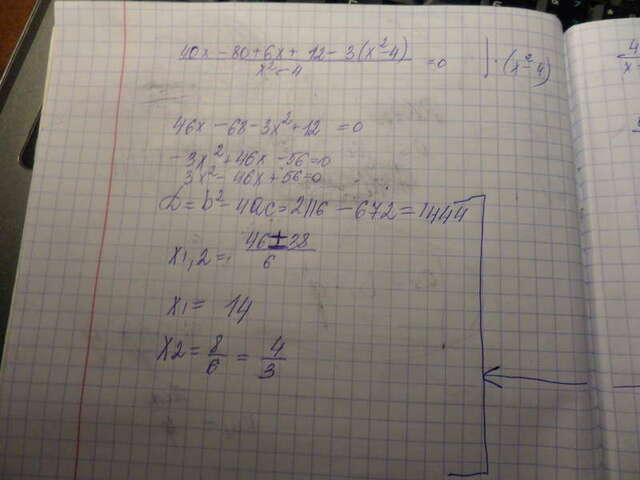 (40x - 80 + 6x + 12 - 3(x² - 4)) / (x² - 4) = 0 | · (x² - 4)
46x - 68 - 3x² + 12 = 0
-3x² + 46x - 56 = 0
3x² - 46x + 56 = 0
D = b² - 4ac = 2116 - 672 = 1444
x1,2 = (46 ± 38) / 6
x1 = 14
x2 = 8/6 = 4/3